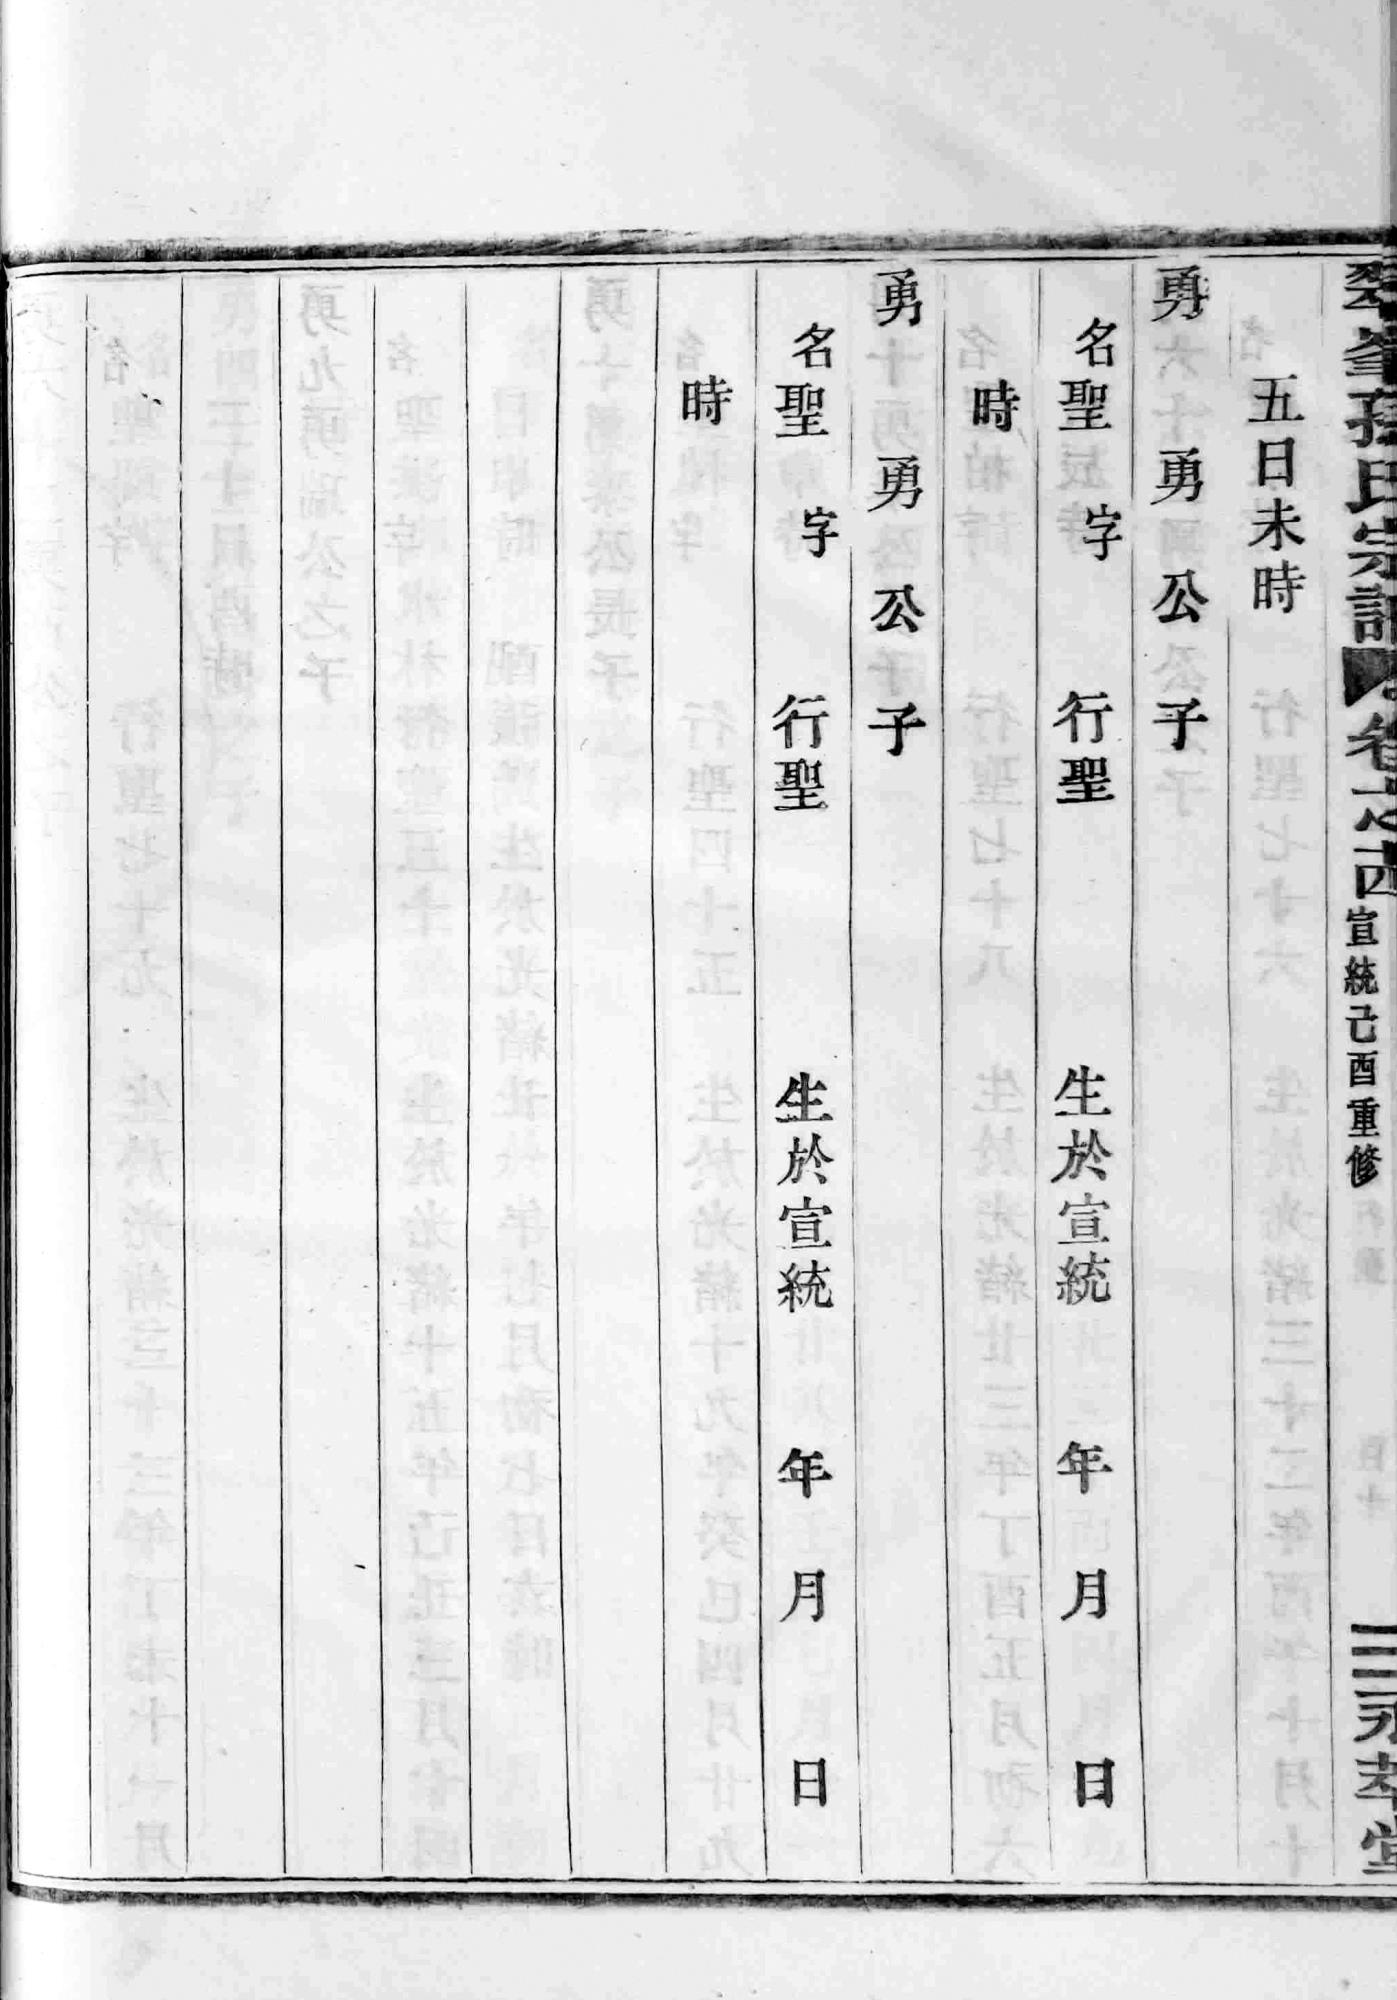 翠峯孫氏宗譜 卷之四 宣統己酉重修 二 永萃堂
五日未時
勇 勇 公 子
名聖 字 行聖 生於宣統 年 月 日
時
勇 勇 公 子
名聖 字 行聖 生於宣統 年 月 日
時